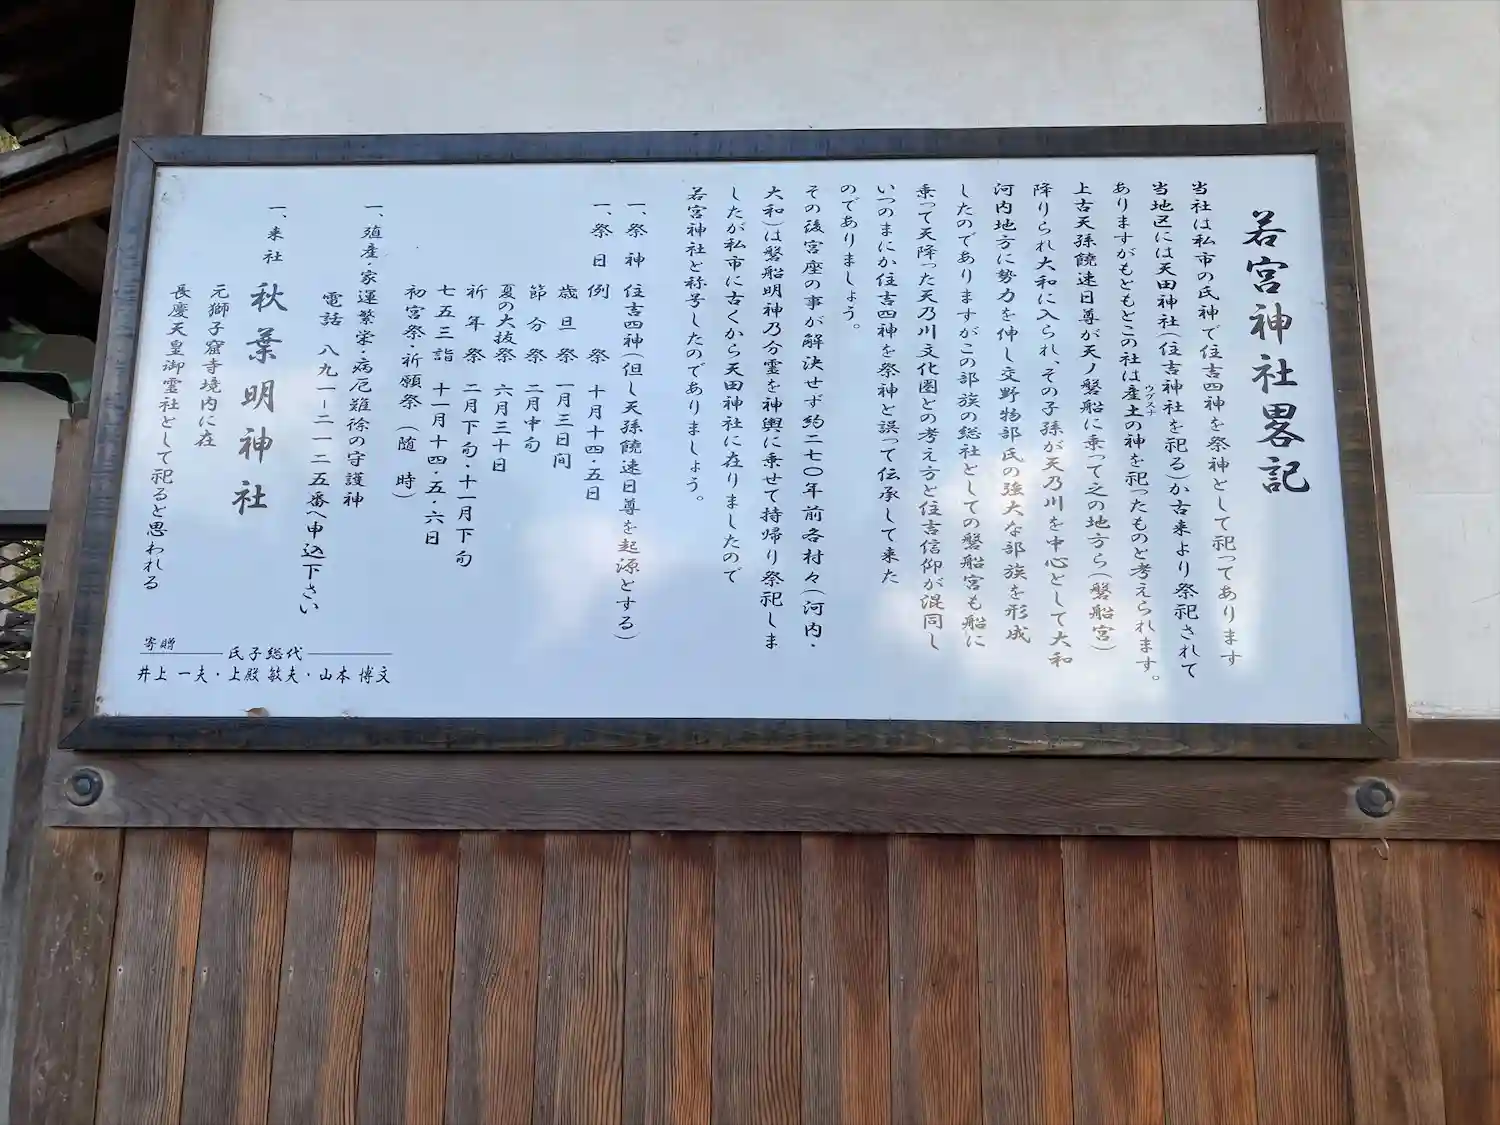 若宮神社畧記
当社は私市の氏神で住吉四神を祭神として祀ってあります
当地区には天田神社(住吉神社を祀る)か古来より祭祀されて
ありますがもともとこの社は産土の神を祀ったものと考えられます。
ウブスナ
上古天孫饒速日尊が天ノ磐船に乗って之の地方ら(磐船宮)
降りられ大和に入られ、その子孫が天乃川を中心として大和
河内地方に勢力を伸し交野物部氏の強大な部族を形成
したのでありますがこの部族の総社としての磐船宮も船に
乗って天降った天乃川文化圏との考え方と住吉信仰が混同し
いつのまにか住吉四神を祭神と誤って伝承して来た
のでありましょう。
その後宮座の事が解決せず約二七〇年前各村々(河内・
大和)は磐船明神乃分霊を神輿に乗せて持帰り祭祀しま
したが私市に古くから天田神社に在りましたので
若宮神社と称号したのでありましょう。
一、祭神 住吉四神(但し天孫饒速日尊を起源とする)
一、祭日 例祭 十月十四・五日
歳旦祭 一月三日間
節分祭 二月中旬
夏の大抜祭 六月三十日
祈年祭 二月下旬・十一月下旬
七五三詣 十一月十四・五・六日
初宮祭・祈願祭(随時)
一、殖産・家運繁栄・病厄難除の守護神
電話 八九一ー二一二五番へ申込下さい
一、末社 秋葉明神社
元獅子窟寺境内に在
長慶天皇御霊社として祀ると思われる
寄贈
氏子総代
井上 一夫・上殿 敏夫・山本 博文